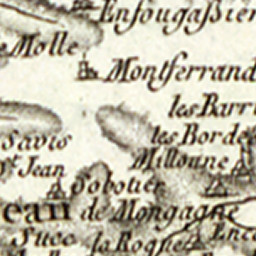 Ensougaßier
Molle
Montferrand
les Barri
les Borde
Savis
St Jean
Millonne
Sobotier
ean de Mongagne
Suce
la Roque
Ence